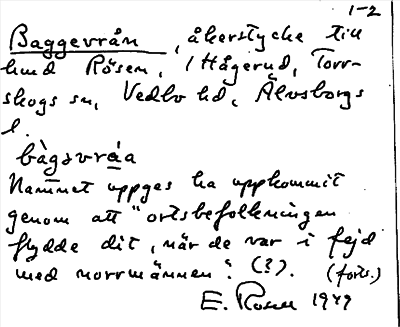 1-2
Baggevrån, åkerstycke till
hmd Rösen, 1 Hågerud, Torr-
skogs sn, Vedbo hd, Älvsborgs
l.
bàgavrá̱a
Namnet uppges ha uppkommit
genom att "ortsbefolkningen
flydde dit, när de var i fejd
med norrmännen". (?). (forts.)
E. Rosell 1949